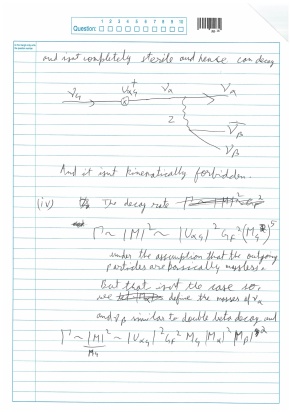 1 2 3 4 5 6 7 8 9 10
Question:
and isnt completely sterile and hence can decay
ν₄ U*α4 να να
Z
ν̄β
νβ
And it isnt kinematically forbidden.
(iv) The decay rate Γ ~ |M|² ~ G_F²
Γ ~ |M|² ~ |Uα4|² G_F² (M₄)⁵
under the assumption that the outgoing
particles are basically massless.
But that isnt the case so,
we define the masses of να
and νβ similar to double beta decay and
Γ ~ |M|²/M₄ ~ |Uα4|² G_F² M₄ |Mα|² |Mβ|²